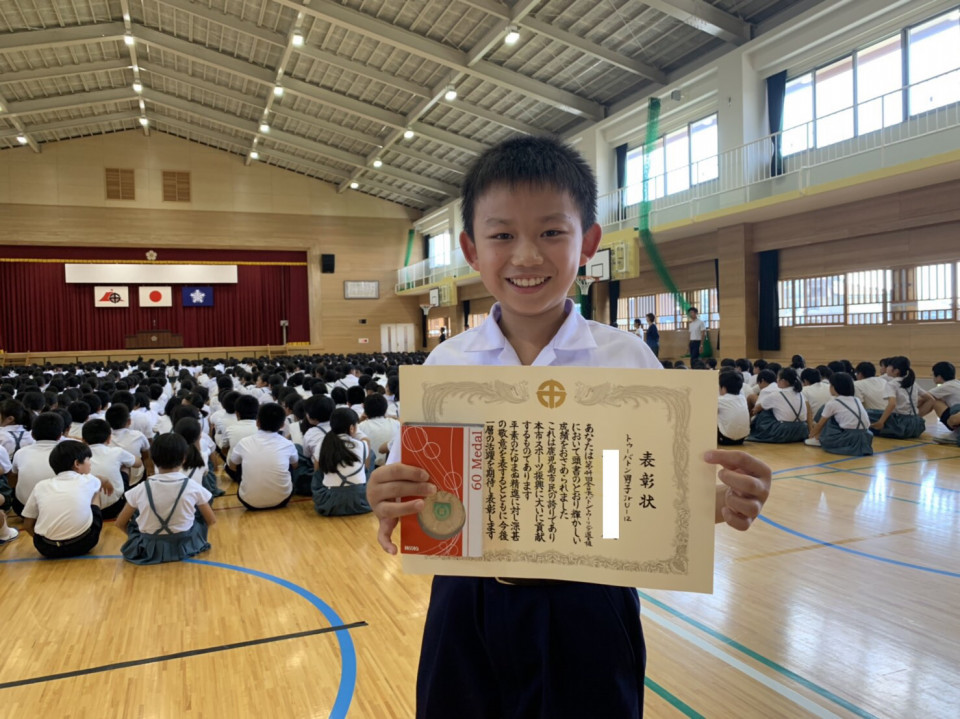 表彰状
トゥーバトン男子
あなたは第
において頭書のとおり輝かしい
成績をおさめられました
これは鹿児島市民の誇りであり
本市スポーツ振興に大いに貢献
するものであります
平素のたゆまぬ精進に対し深甚
の敬意を表するとともに今後
一層の活躍を期待し表彰します
60 Medal